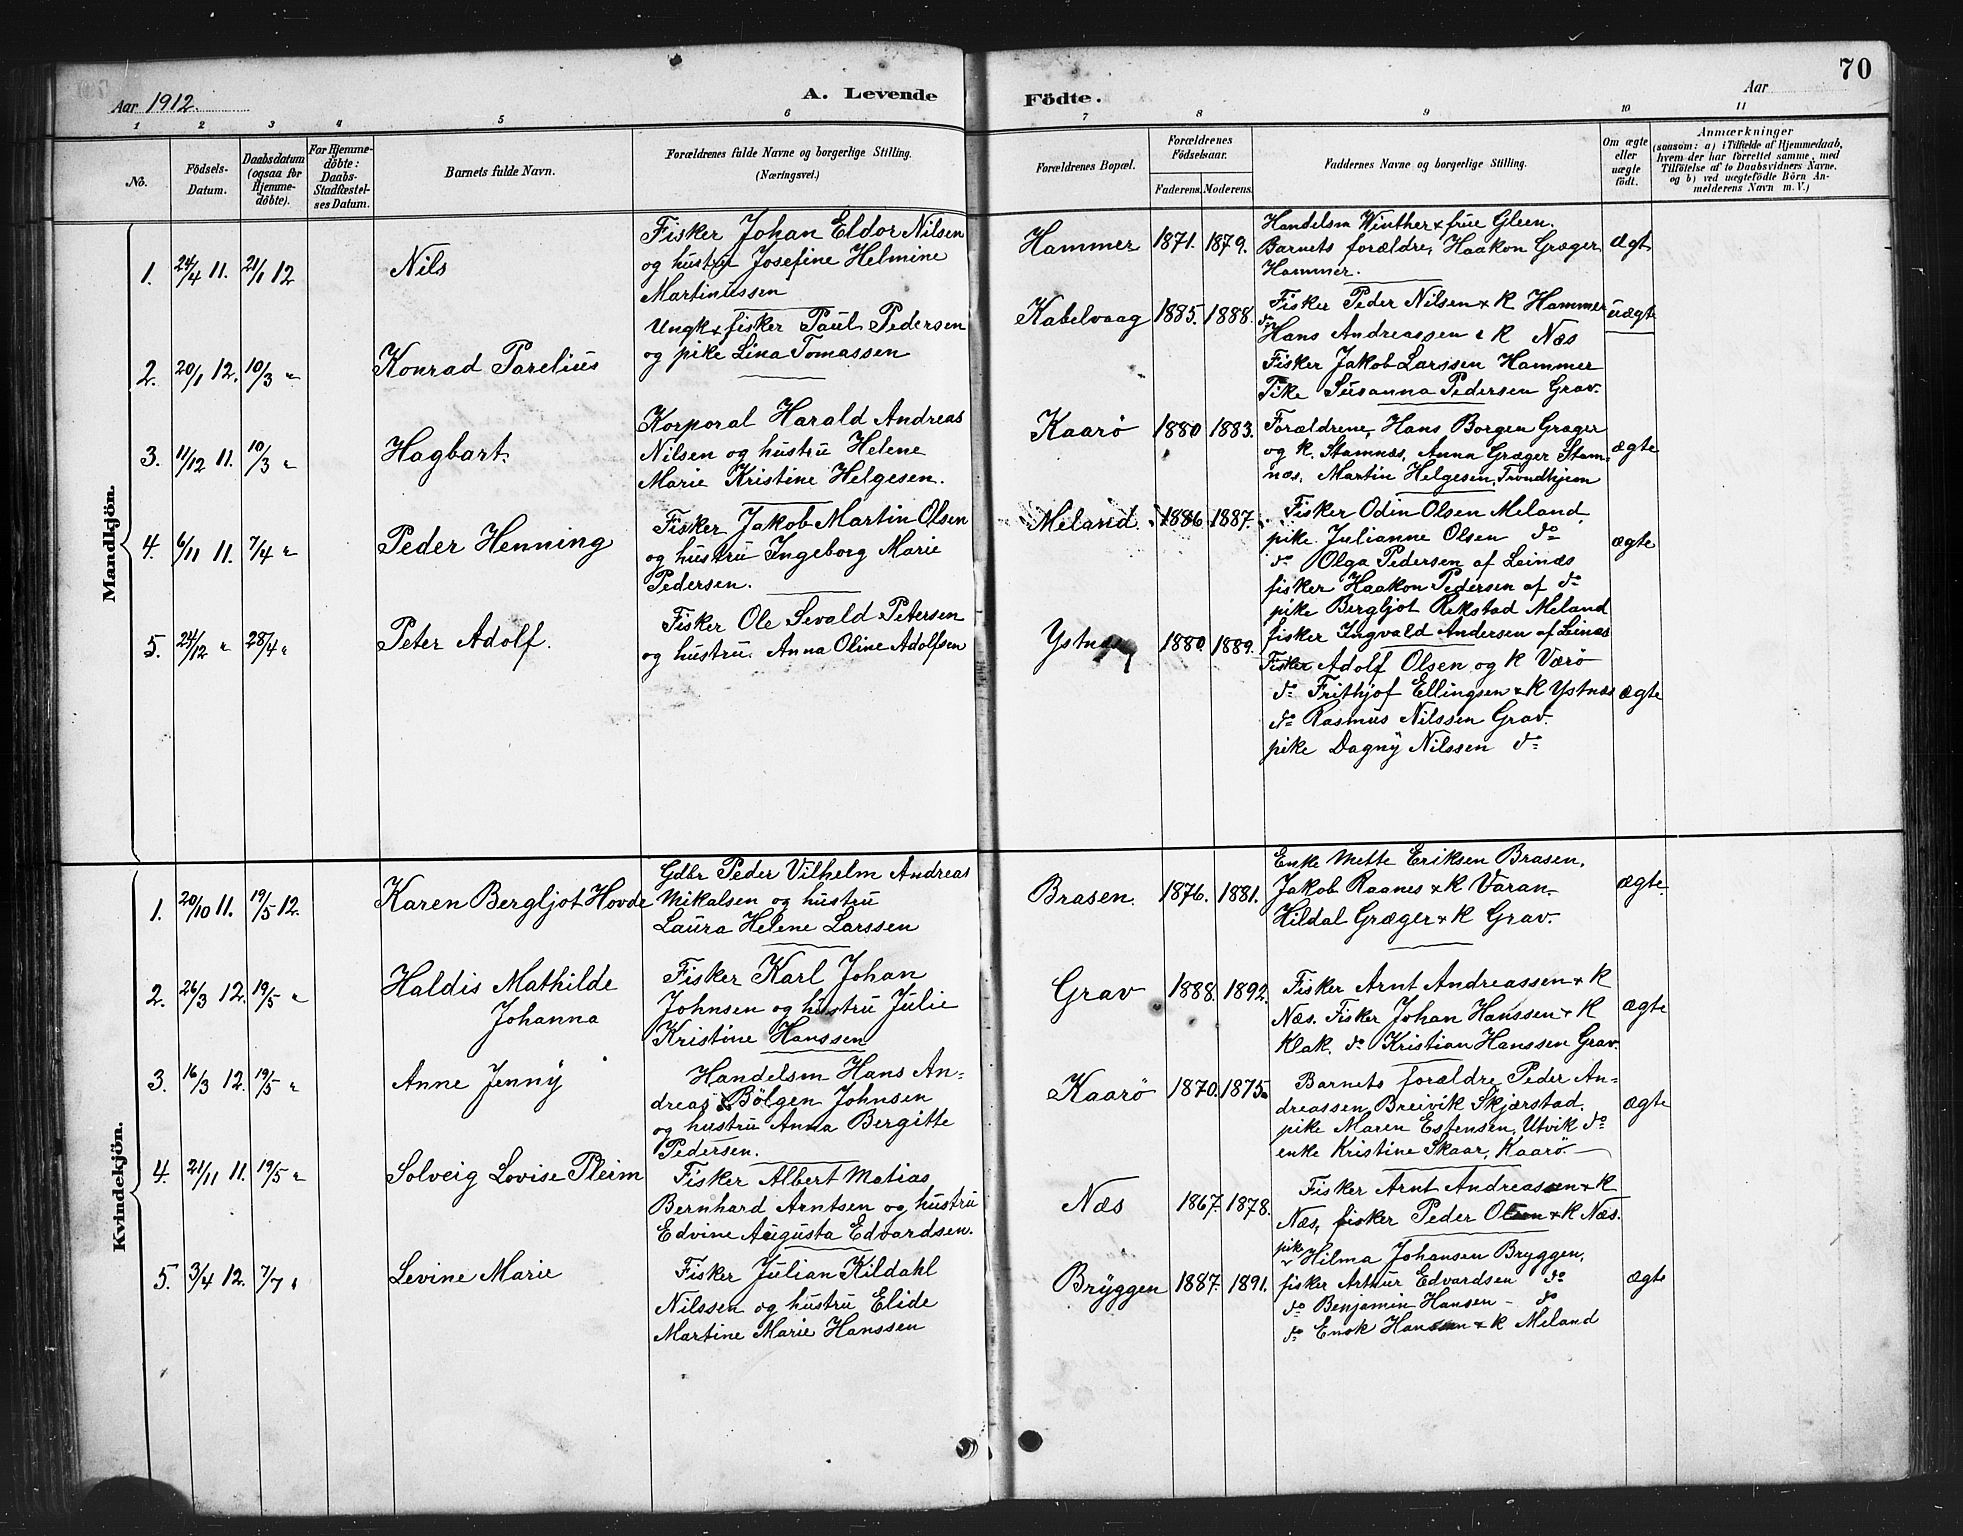 70
Aar 1912.
A. Levende Födte.
Aar
1 2 3 4 5 6 7 8 9 10 11
No.
Födsels-Datum.
Daabsdatum (ogsaa for Hjemmedöbte).
For Hjemmedöbte: Daabs-Stadfestelses Datum.
Barnets fulde Navn.
Forældrenes fulde Navne og borgerlige Stilling.
(Næringsvei.)
Forældrenes Bopæl.
Forældrenes Födselsaar.
Faderens. Moderens.
Faddernes Navne og borgerlige Stilling.
Om ægte eller uægte födt.
Anmærkninger
(saasom: a) i Tilfælde af Hjemmedaab, hvem der har forrettet samme, med Tilföielse af to Daabsvidners Navne, og b) ved uægtefödte Börn Anmelderens Navn m. V.)
Mandkjön.
1. 24/4 11. 21/1 12
Nils
Fisker Johan Eldor Nilsen
og hustru Josefine Helmine
Martinussen
Hammer 1871. 1879.
Handelsm Winther & frue Gleen.
Barnets forældre, Haakon Græger
Hammer.
ægt.
2. 20/1 12. 10/3 "
Konrad Parelius
Ungk & fisker Paul Pedersen
og pike Lina Tomassen
Kabelvaag 1885. 1888.
Fisker Peder Nilsen & K Hammer
do Hans Andreassen & K Næs
Fisker Jakob Larssen Hammer
Pike Susanna Pedersen Grav.
uægte
3. 11/12 11. 10/3 "
Hagbart.
Korporal Harald Andreas
Nilsen og hustru Helene
Marie Kristine Helgesen.
Kaarø 1880 1883.
Forældrene, Hans Borgen Græger
og K. Stamnæs, Anna Græger Stam-
næs, Martin Helgesen, Trondhjem
ægte
4. 6/11 11. 7/4 "
Peder Henning
Fisker Jakob Martin Olsen
og hustru Ingeborg Marie
Pedersen.
Meland. 1886 1887.
Fisker Odin Olsen Meland,
pike Julianne Olsen do
do Olga Pedersen af Leinæs
fisker Haakon Pedersen af do
pike Bergljot Rekstad Meland
fisker Ingvald Andersen af Leinæs
ægte
5. 24/12 " 28/4 "
Peter Adolf.
Fisker Ole Sevald Petersen
og hustru Anna Oline Adolfsen
Ystnæs 1880 1889.
Fisker Adolf Olsen og K Værø
do Frithjof Ellingsen & K Ystnæs
do Rasmus Nilssen Grav.
pike Dagny Nilssen do
ægte
Kvindekjön.
1. 20/10 11. 19/5 12.
Karen Bergljot Hovde
Gdbr Peder Vilhelm Andreas
Mikalsen og hustru
Laura Helene Larssen
Brasen. 1876. 1881.
Enke Mette Eriksen Brasen,
Jakob Raanes & K Varan-
Hildal Græger & K Grav.
ægte
2. 26/3 12. 19/5 "
Haldis Mathilde
Johanna
Fisker Karl Johan
Johnsen og hustru Julie
Kristine Hanssen
Grav 1888. 1892.
Fisker Arnt Andreassen & K
Næs. Fisker Johan Hanssen & K
Klak. do Kristian Hanssen Grav.
ægte
3. 16/3 12. 19/5 "
Anne Jenny
Handelsm Hans An-
dreas Bölgen Johnsen
og hustru Anna Bergitte
Pedersen.
Kaarö 1870. 1875.
Barnets forældre, Peder An-
dreassen, Breivik Skjærstad,
pike Maren Estensen, Utvik do
enke Kristine Skaar, Kaarö
ægte
4. 21/11 11. 19/5 "
Solveig Lovise Pleim
Fisker Albert Matias
Bernhard Arntsen og hustru
Edvine Augusta Edvardsen.
Næs 1867. 1878.
Fisker Arnt Andreassen & K
Næs, fisker Peder Olsen & K Næs.
pike Hilma Johansen Bryggen,
5. 3/4 12. 7/7 "
Levine Marie
Fisker Julian Kildahl
Nilssen og hustru Elide
Martine Marie Hanssen
Bryggen 1887. 1891.
fisker Arthur Edvardsen do
do Benjamin Hansen - do
do Enok Hanssen & K Meland
ægte